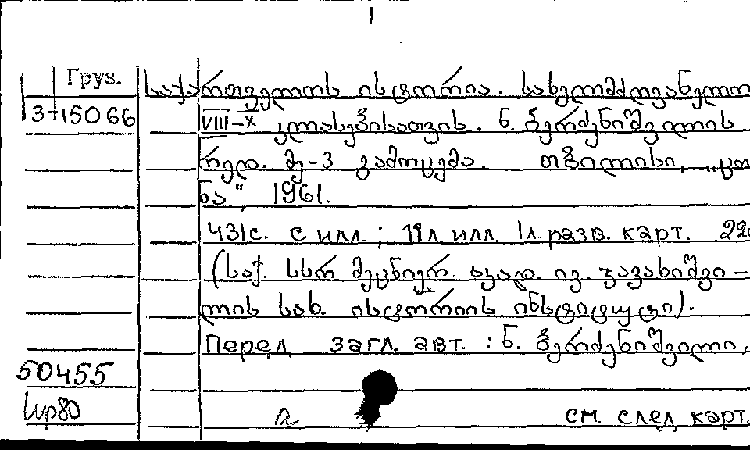 Груз.
საქართველოს ისტორია. სახელმძღვანელო
3-15066
VIII-X კლასებისათვის. ნ. ბერძენიშვილის
რედ. მე-3 გამოცემა. თბილისი, „ცოდ
ნა“, 1961.
431с. с илл; 11л илл. 1л. разв. карт. 22
(საქ. სსრ მეცნიერ. აკად. ივ. ჯავახიშვი-
ლის სახ. ისტორიის ინსტიტუტი).
Перед загл. авт.: ნ. ბერძენიშვილი,
50455
см. след. карт.